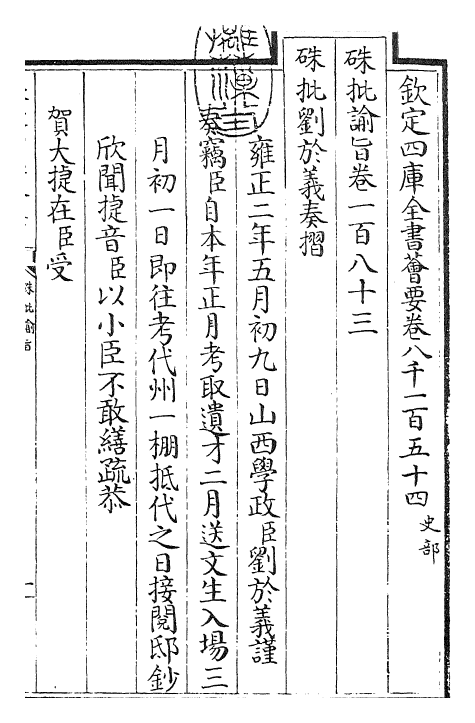 欽定四庫全書薈要卷八千一百五十四 史部
硃批諭旨卷一百八十三
硃批劉於義奏摺
雍正二年五月初九日山西學政臣劉於義謹
奏竊臣自本年正月考取遺才二月送文生入場三
月初一日即往考代州一棚抵代之日接閱邸鈔
欣聞捷音臣以小臣不敢繕疏恭
賀大捷在臣受
硃批諭旨